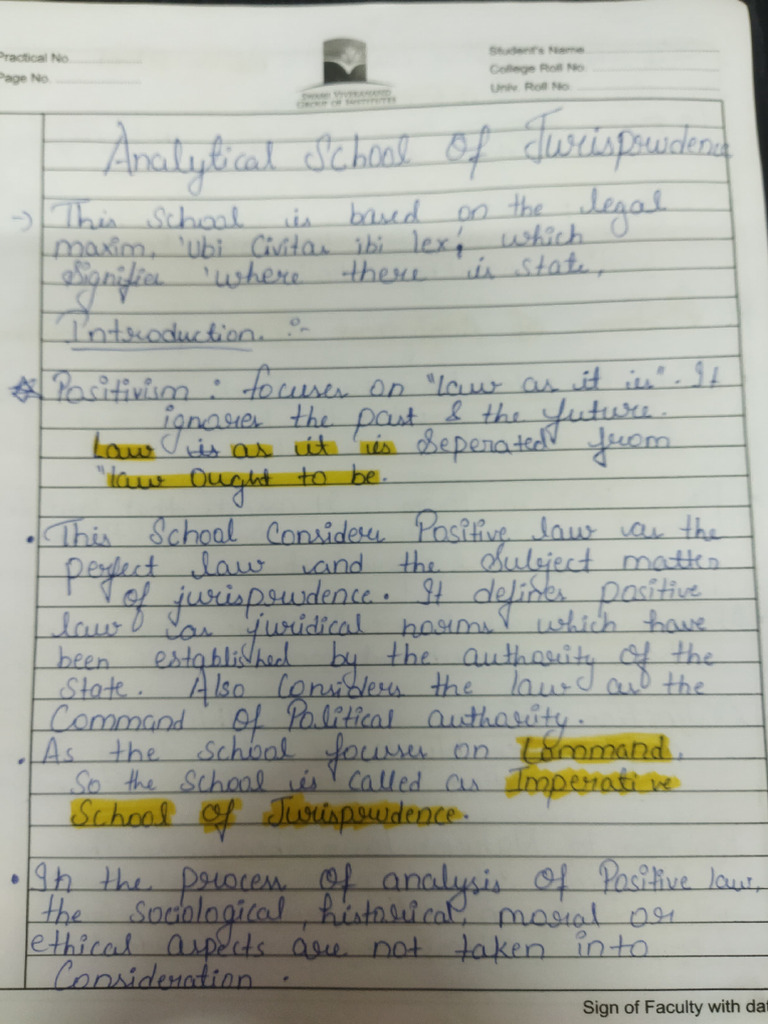 Practical No.
Page No.
SWAMI VIVEKANAND
GROUP OF INSTITUTES
Student's Name
College Roll No.
Univ. Roll No.
Analytical School Of Jurisprudence
→ This School is based on the legal
maxim, 'Ubi Civitas ibi lex', which
Signifies 'where there is state,
Introduction :-
Positivism : focuses on "law as it is". It
ignores the past & the future.
Law is as it is Seperated from
"law Ought to be.
• This School Considers Positive law as the
perfect law and the Subject matter
of jurisprudence. It defines positive
law as juridical norms which have
been established by the authority of the
State. Also Considers the law as the
Command Of Political authority.
• As the School focuses on Command,
So the School is called as Imperative
School Of Jurisprudence.
• In the process Of analysis Of Positive law,
the Sociological, historical, moral or
ethical aspects are not taken into
Consideration.
Sign of Faculty with dat